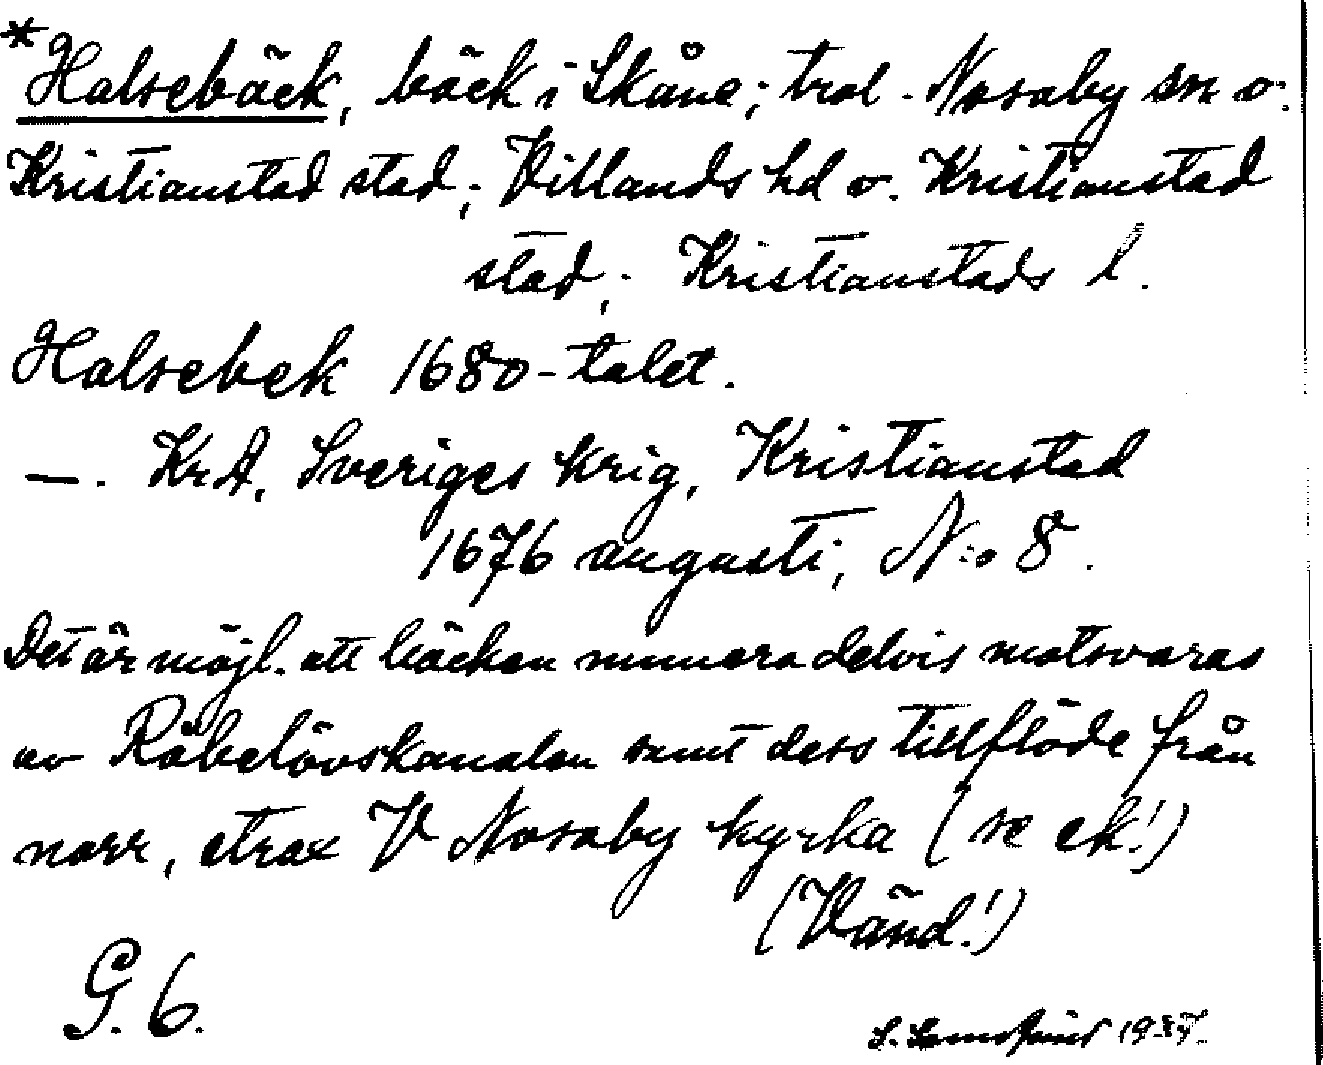 *Halsebäck, bäck i Skåne; trol. Nosaby sn o.
Kristianstad stad; Villands hd o. Kristianstad
stad; Kristianstads l.
Halsebek 1680-talet.
—. KrA, Sveriges krig, Kristianstad
1676 augusti, N:o 8.
Det är möjl. att bäcken numera delvis motsvaras
av Råbelövskanalen samt dess tillflöde från
norr, strax V Nosaby kyrka (se ek!)
(Vänd!)
G. 6.
1937.